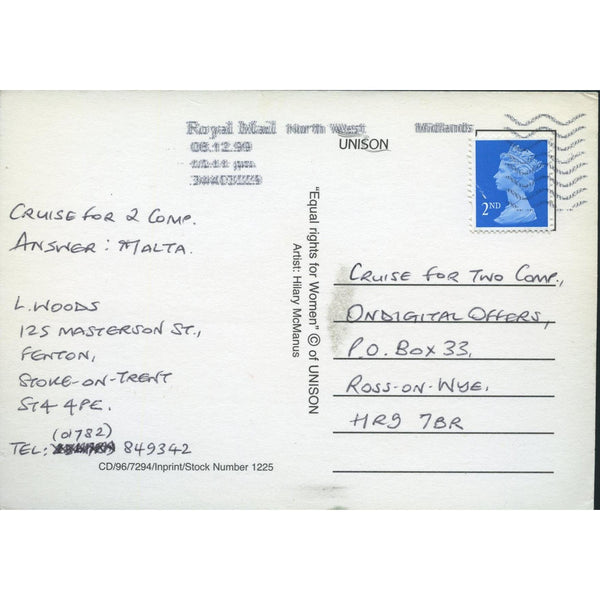 Royal Mail North West Midlands
08.12.99
UNISON
2ND
CRUISE FOR 2 COMP.
ANSWER: MALTA.
L. WOODS
125 MASTERSON ST.,
FENTON,
STOKE-ON-TRENT
ST4 4PE.
(01782)
TEL: 849342
CD/96/7294/Inprint/Stock Number 1225
"Equal rights for Women" © of UNISON
Artist: Hilary McManus
CRUISE FOR TWO COMP.,
ONDIGITAL OFFERS,
P.O. BOX 33,
ROSS-ON-WYE.
HR9 7BR